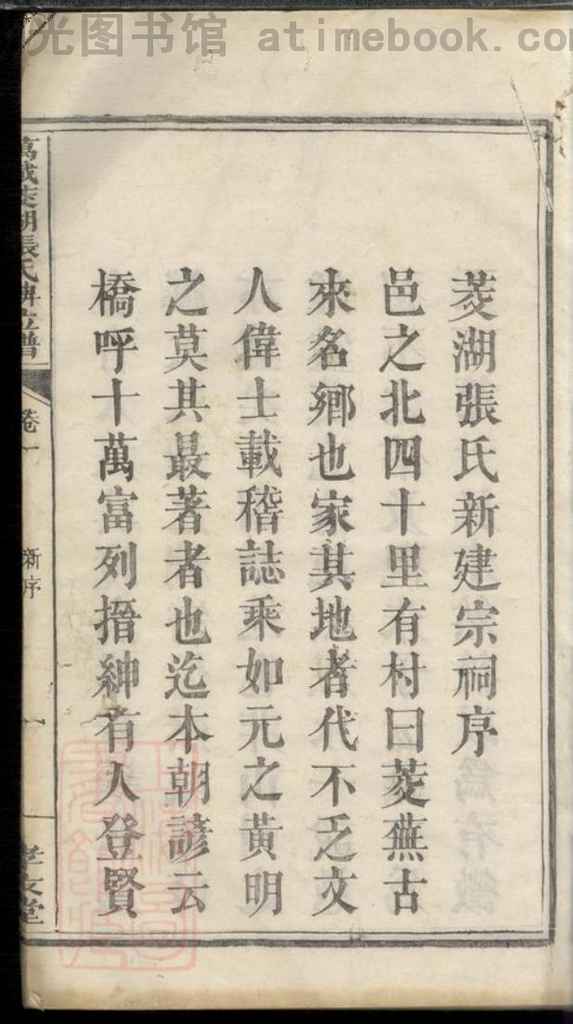 光图书馆 atimebook.com
菱湖張氏新建宗祠序
邑之北四十里有村曰菱蕪古
來名鄉也家其地者代不乏文
人偉士載稽誌乘如元之黃明
之莫其最著者也迄本朝諺云
橋呼十萬富列搢紳有人登賢
萬載菱湖張氏牌位譜
卷一
新序
一
孝友堂